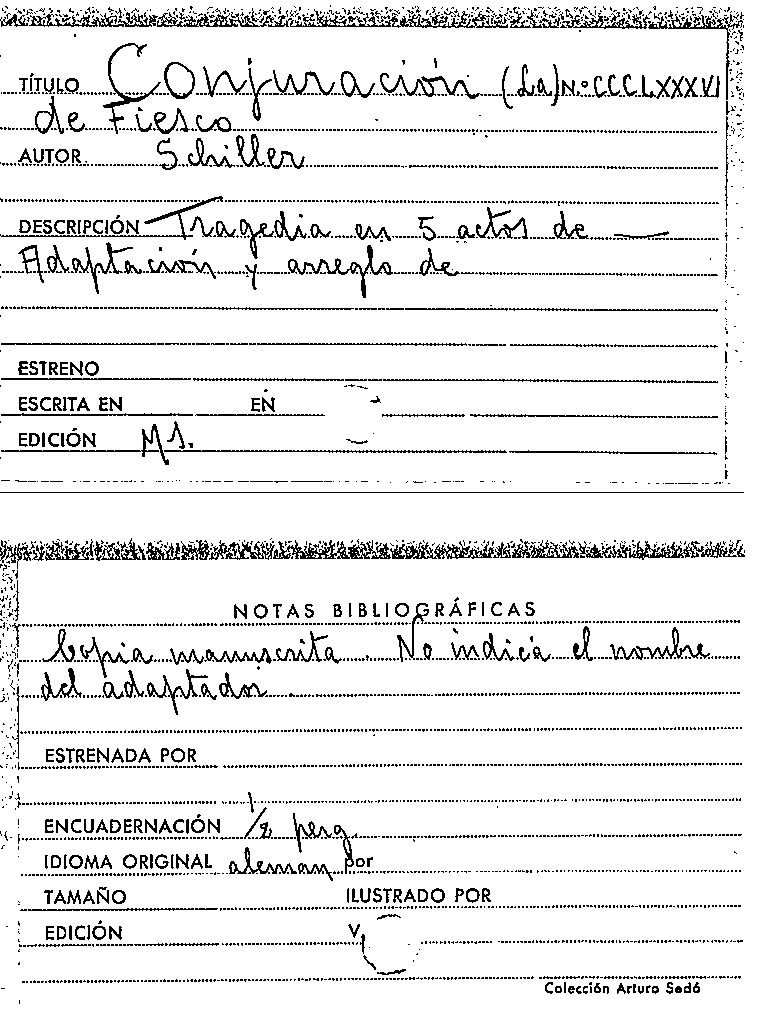 TÍTULO Conjuración (La) N.º CCCLXXXVI
de Fiesco
AUTOR Schiller
DESCRIPCIÓN Tragedia en 5 actos de —
Adaptación y arreglo de
ESTRENO
ESCRITA EN EN
EDICIÓN Ms.
NOTAS BIBLIOGRÁFICAS
Copia manuscrita. No indica el nombre
del adaptador.
ESTRENADA POR
ENCUADERNACIÓN 1/2 perg.
IDIOMA ORIGINAL aleman por
TAMAÑO ILUSTRADO POR
EDICIÓN V.
Colección Arturo Sedó